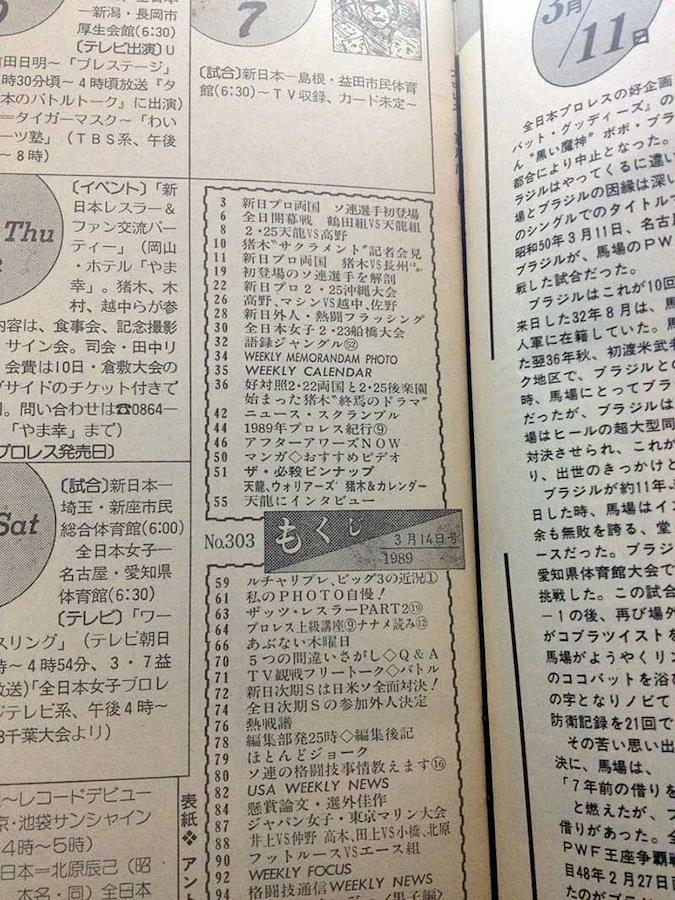 ―新潟・長岡市
厚生会館(6:30)
〔テレビ出演〕U
前田日明〜「プレステージ」
時30分頃〜4時頃放送『タ
本のバトルトーク』に出演)
＝タイガーマスク〜「わい
ーツ塾」（TBS系、午後
〜8時）
7
〔試合〕新日本―島根・益田市民体育
館(6:30)〜TV収録、カード未定〜
Thu
〔イベント〕「新
日本レスラー＆
ファン交流パー
ティー」（岡山
・ホテル「やま
幸」。猪木、木
村、越中らが参
内容は、食事会、記念撮影
サイン会。司会・田中リ
会費は10日・倉敷大会の
グサイドのチケット付きで
円。問い合わせは☎0864―
「やま幸」まで）
プロレス発売日〕
Sat
〔試合〕新日本―
埼玉・新座市民
総合体育館(6:00)
全日本女子―
名古屋・愛知県
体育館(6:30)
〔テレビ〕「ワー
スリング」（テレビ朝日
〜4時54分、3・7益
放送)｢全日本女子プロレ
ジテレビ系、午後4時〜
8千葉大会より）
〜レコードデビュー
京・池袋サンシャイン
4時〜5時）
日本＝北原辰己（昭
本名・同）全日本
表紙❖アント
3 新日プロ両国 ソ連選手初登場
6 全日開幕戦 鶴田組VS天龍組
8 2・25天龍VS高野
10 猪木“サクラメント”記者会見
11 新日プロ両国 猪木VS長州ほか
19 初登場のソ連選手を解剖
22 新日プロ2・25沖縄大会
26 高野、マシンVS越中、佐野
28 新日外人・熱闘フラッシング
30 全日本女子2・23船橋大会
32 語録ジャングル㊾
34 WEEKLY MEMORANDAM PHOTO
35 WEEKLY CALENDAR
36 好対照2・22両国と2・25後楽園
始まった猪木“終焉のドラマ”
42 ニュース・スクランブル
44 1989年プロレス紀行⑨
46 アフターアワーズNOW
50 マンガ◇おすすめビデオ
51 ザ・必殺ピンナップ
天龍、ウォリアーズ 猪木＆カレンダー
55 天龍にインタビュー
No.303 もくじ 3月14日号
1989
59 ルチャリブレ、ビッグ3の近況①
61 私のPHOTO自慢！
63 ザッツ・レスラーPART2⑲
64 プロレス上級講座⑨ナナメ読み⑫
66 あぶない木曜日
70 5つの間違いさがし◇Q＆A
71 TV観戦フリートーク◇バトル
72 新日次期Sは日米ソ全面対決！
74 全日次期Sの参加外人決定
76 熱戦譜
78 編集部発25時◇編集後記
79 ほとんどジョーク
80 ソ連の格闘技事情教えます⑯
82 USA WEEKLY NEWS
84 懸賞論文・選外佳作
87 ジャパン女子・東京マリン大会
88 井上VS仲野 高木、田上VS小橋、北原
90 フットルースVSエース組
92 WEEKLY FOCUS
94 格闘技通信WEEKLY NEWS
3月
11日
全日本プロレスの好企画
バット・グッディーズ』の
ん“黒い魔神”ボボ・ブラ
都合により中止となった。
ラジルはやってくるに違い
場とブラジルの因縁は深い
のシングルでのタイトルマ
昭和50年3月11日、名古屋
ブラジルが、馬場のPWF
戦した試合だった。
ブラジルはこれが10回
来日した32年8月は、馬
人軍に在籍していた。馬
た翌36年秋、初渡米武者
ク地区で、ブラジルとの
時、馬場にとってブラ
だったが、ブラジルは
場はヒールの超大型同
対決させられ、これが
り、出世のきっかけと
ブラジルが約11年ぶ
日した時、馬場はイン
余も無敗を誇る、堂
ースだった。ブラジ
愛知県体育館大会で
挑戦した。この試合
－1の後、再び場外
がコブラツイストを
馬場がようやくリン
のココバットを浴び
の字となりノビて
防衛記録を21回で
その苦い思い出
決に、馬場は、
「7年前の借りを
と燃えたが、ブ
借りがあった。全
PWF王座争覇戦
目48年2月27日両
たのがブラジ